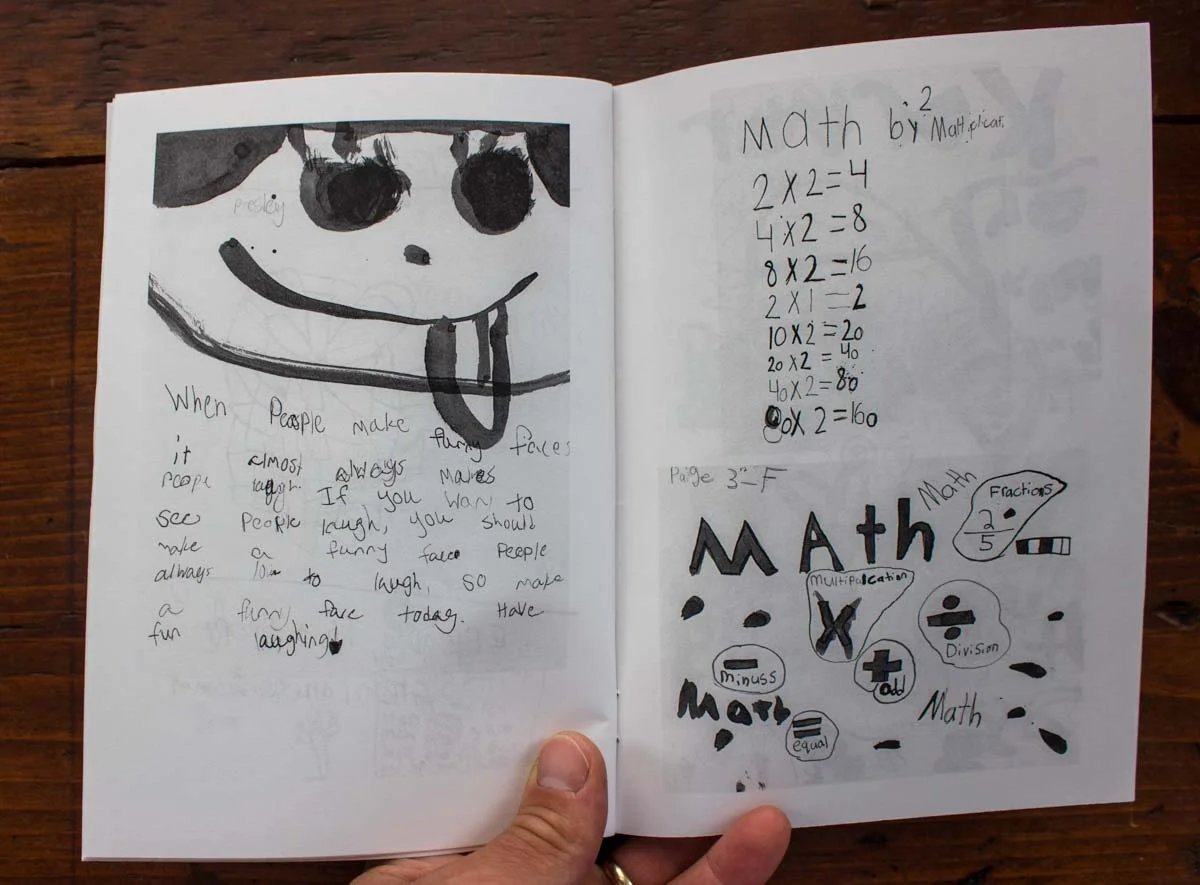 presley
When People make funny faces
it almost always makes
people laugh. If you wan to
see People laugh, you should
make a funny face People
always to laugh, so make
a funny face today. Have
fun laughing!
Math by 2 Multiplicat.
2 x 2 = 4
4 x 2 = 8
8 x 2 = 16
2 x 1 = 2
10 x 2 = 20
20 x 2 = 40
40 x 2 = 80
80 x 2 = 160
Paige 3-F
MAth
Math
Fractions
2
5
Multipalcation
X
÷
Division
-
minuss
+
add
Math
=
equal
Math